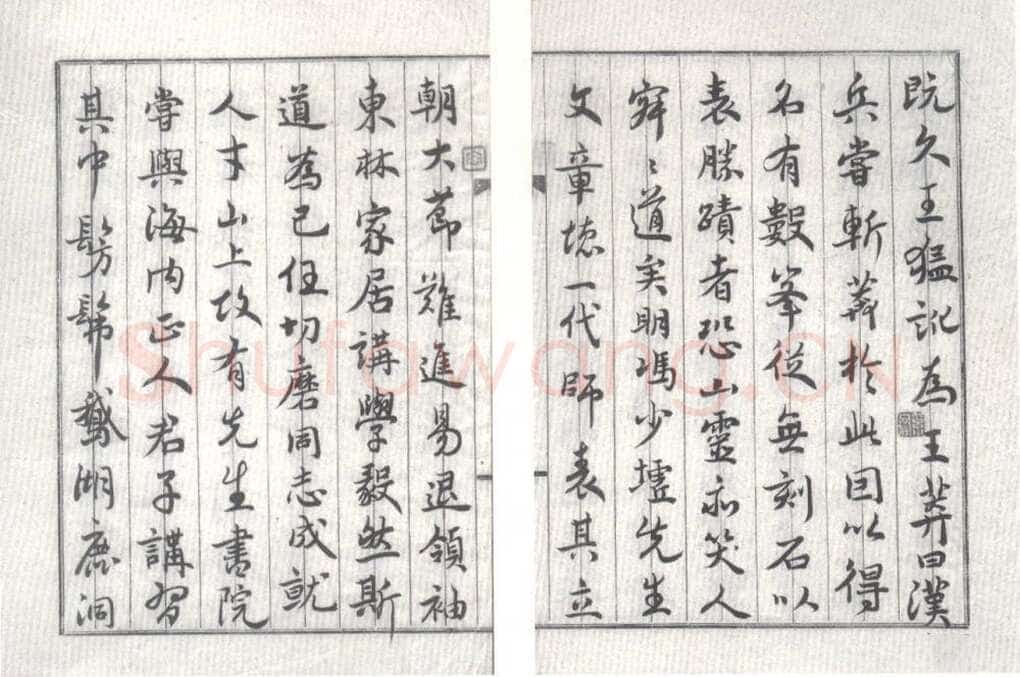 既久王猛訛為王莽曰漢
兵嘗斬莽於此因以得
名有數峯從無刻石以
表勝蹟者恐山靈亦笑人
道矣明馮少墟先生
文章德一代師表其立
朝大節難進易退領袖
東林家居講學毅然斯
道為己任切磨同志成就
人才山上故有先生書院
嘗與海內正人君子講習
其中髣髴鵝湖鹿洞
Shufawang.CN